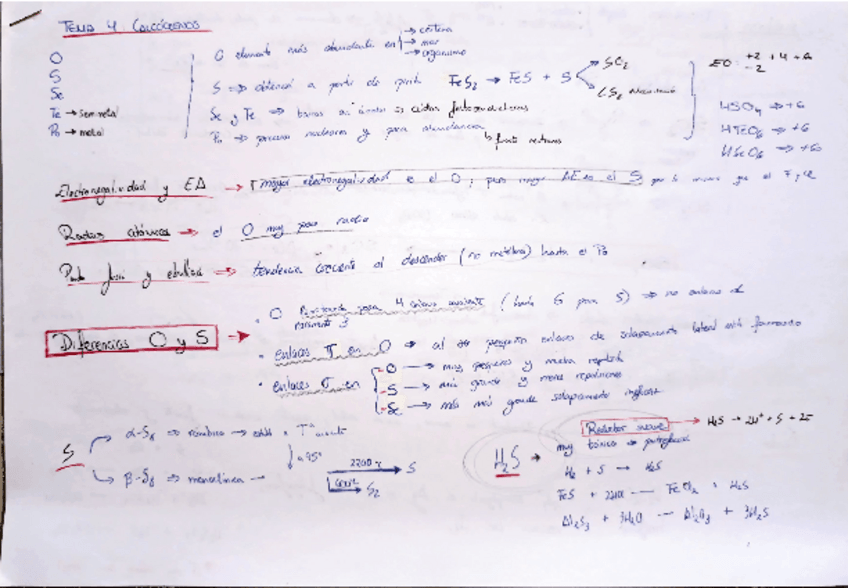 TEMA 4 CALCÓGENOS
O
S
Se
Te → semimetal
Po → metal
O elemento más abundante en → corteza
→ mar
→ organismo
S → obtención a partir de pirita FeS₂ → FeS + S → SO₂
CS₂
Se y Te ⇒ barros ⇒
Po ⇒ procesos nucleares y
EO: +2 +4 +6
-2
HSO₄ ⇒ +6
HTeO₆ ⇒ +6
HSeO₆ ⇒ +6
Electronegatividad y EA → mayor electronegatividad es el O, pero mayor AE es el S
Radios atómicos → el O muy poco radio
Punto fusión y ebullición → tendencia creciente al descender (no metálico) hasta el Po
Diferencias O y S →
• O 4 enlaces covalente (hasta 6 para S) ⇒ no enlaces
• enlaces π en O ⇒ al ser pequeño enlaces de solapamiento lateral está favorecido
• enlaces σ en
O → muy pequeño y mucha repulsión
S → más grande y menos repulsiones
Se → más más grande solapamiento
S
α-S₈ ⇒ rómbico → estable a Tª ambiente
↓ 95º
β-S₈ ⇒ monoclínico →
2200 → S
→ S₂
H₂S →
Reductor suave → H₂S → 2H⁺ + S + 2e⁻
muy tóxico →
H₂ + S → H₂S
FeS + 2HCl → FeCl₂ + H₂S
Al₂S₃ + 3H₂O → Al₂O₃ + 3H₂S